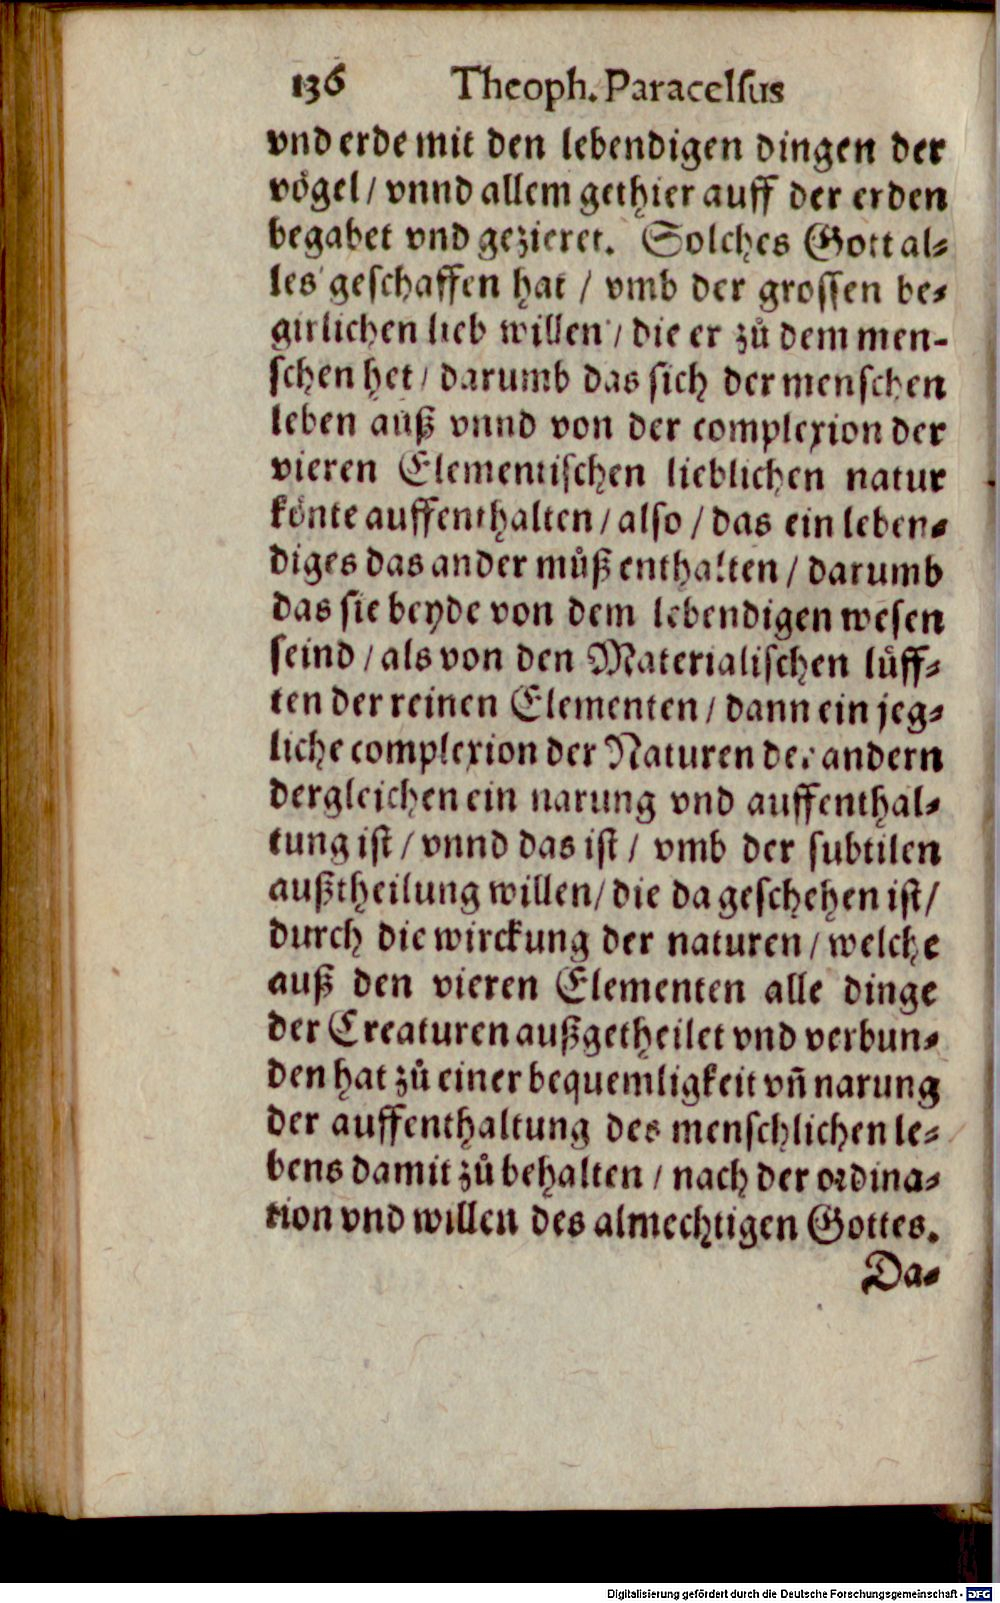 136 Theoph. Paracelsus
vnd erde mit den lebendigen dingen der
vögel / vnnd allem gethier auff der erden
begabet vnd gezieret. Solches Gott al-
les geschaffen hat / vmb der grossen be-
girlichen lieb willen / die er zů dem men-
schen het / darumb das sich der menschen
leben auß vnnd von der complexion der
vieren Elementischen lieblichen natur
könte auffenthalten / also / das ein leben-
diges das ander můß enthalten / darumb
das sie beyde von dem lebendigen wesen
seind / als von den Materialischen lüff-
ten der reinen Elementen / dann ein jeg-
liche complexion der Naturen der andern
dergleichen ein narung vnd auffenthal-
tung ist / vnnd das ist / vmb der subtilen
außtheilung willen / die da geschehen ist /
durch die wirckung der naturen / welche
auß den vieren Elementen alle dinge
der Creaturen außgetheilet vnd verbun-
den hat zů einer bequemligkeit vñ narung
der auffenthaltung des menschlichen le-
bens damit zů behalten / nach der ordina-
tion vnd willen des almechtigen Gottes.
Da-
Digitalisierung gefördert durch die Deutsche Forschungsgemeinschaft - DFG